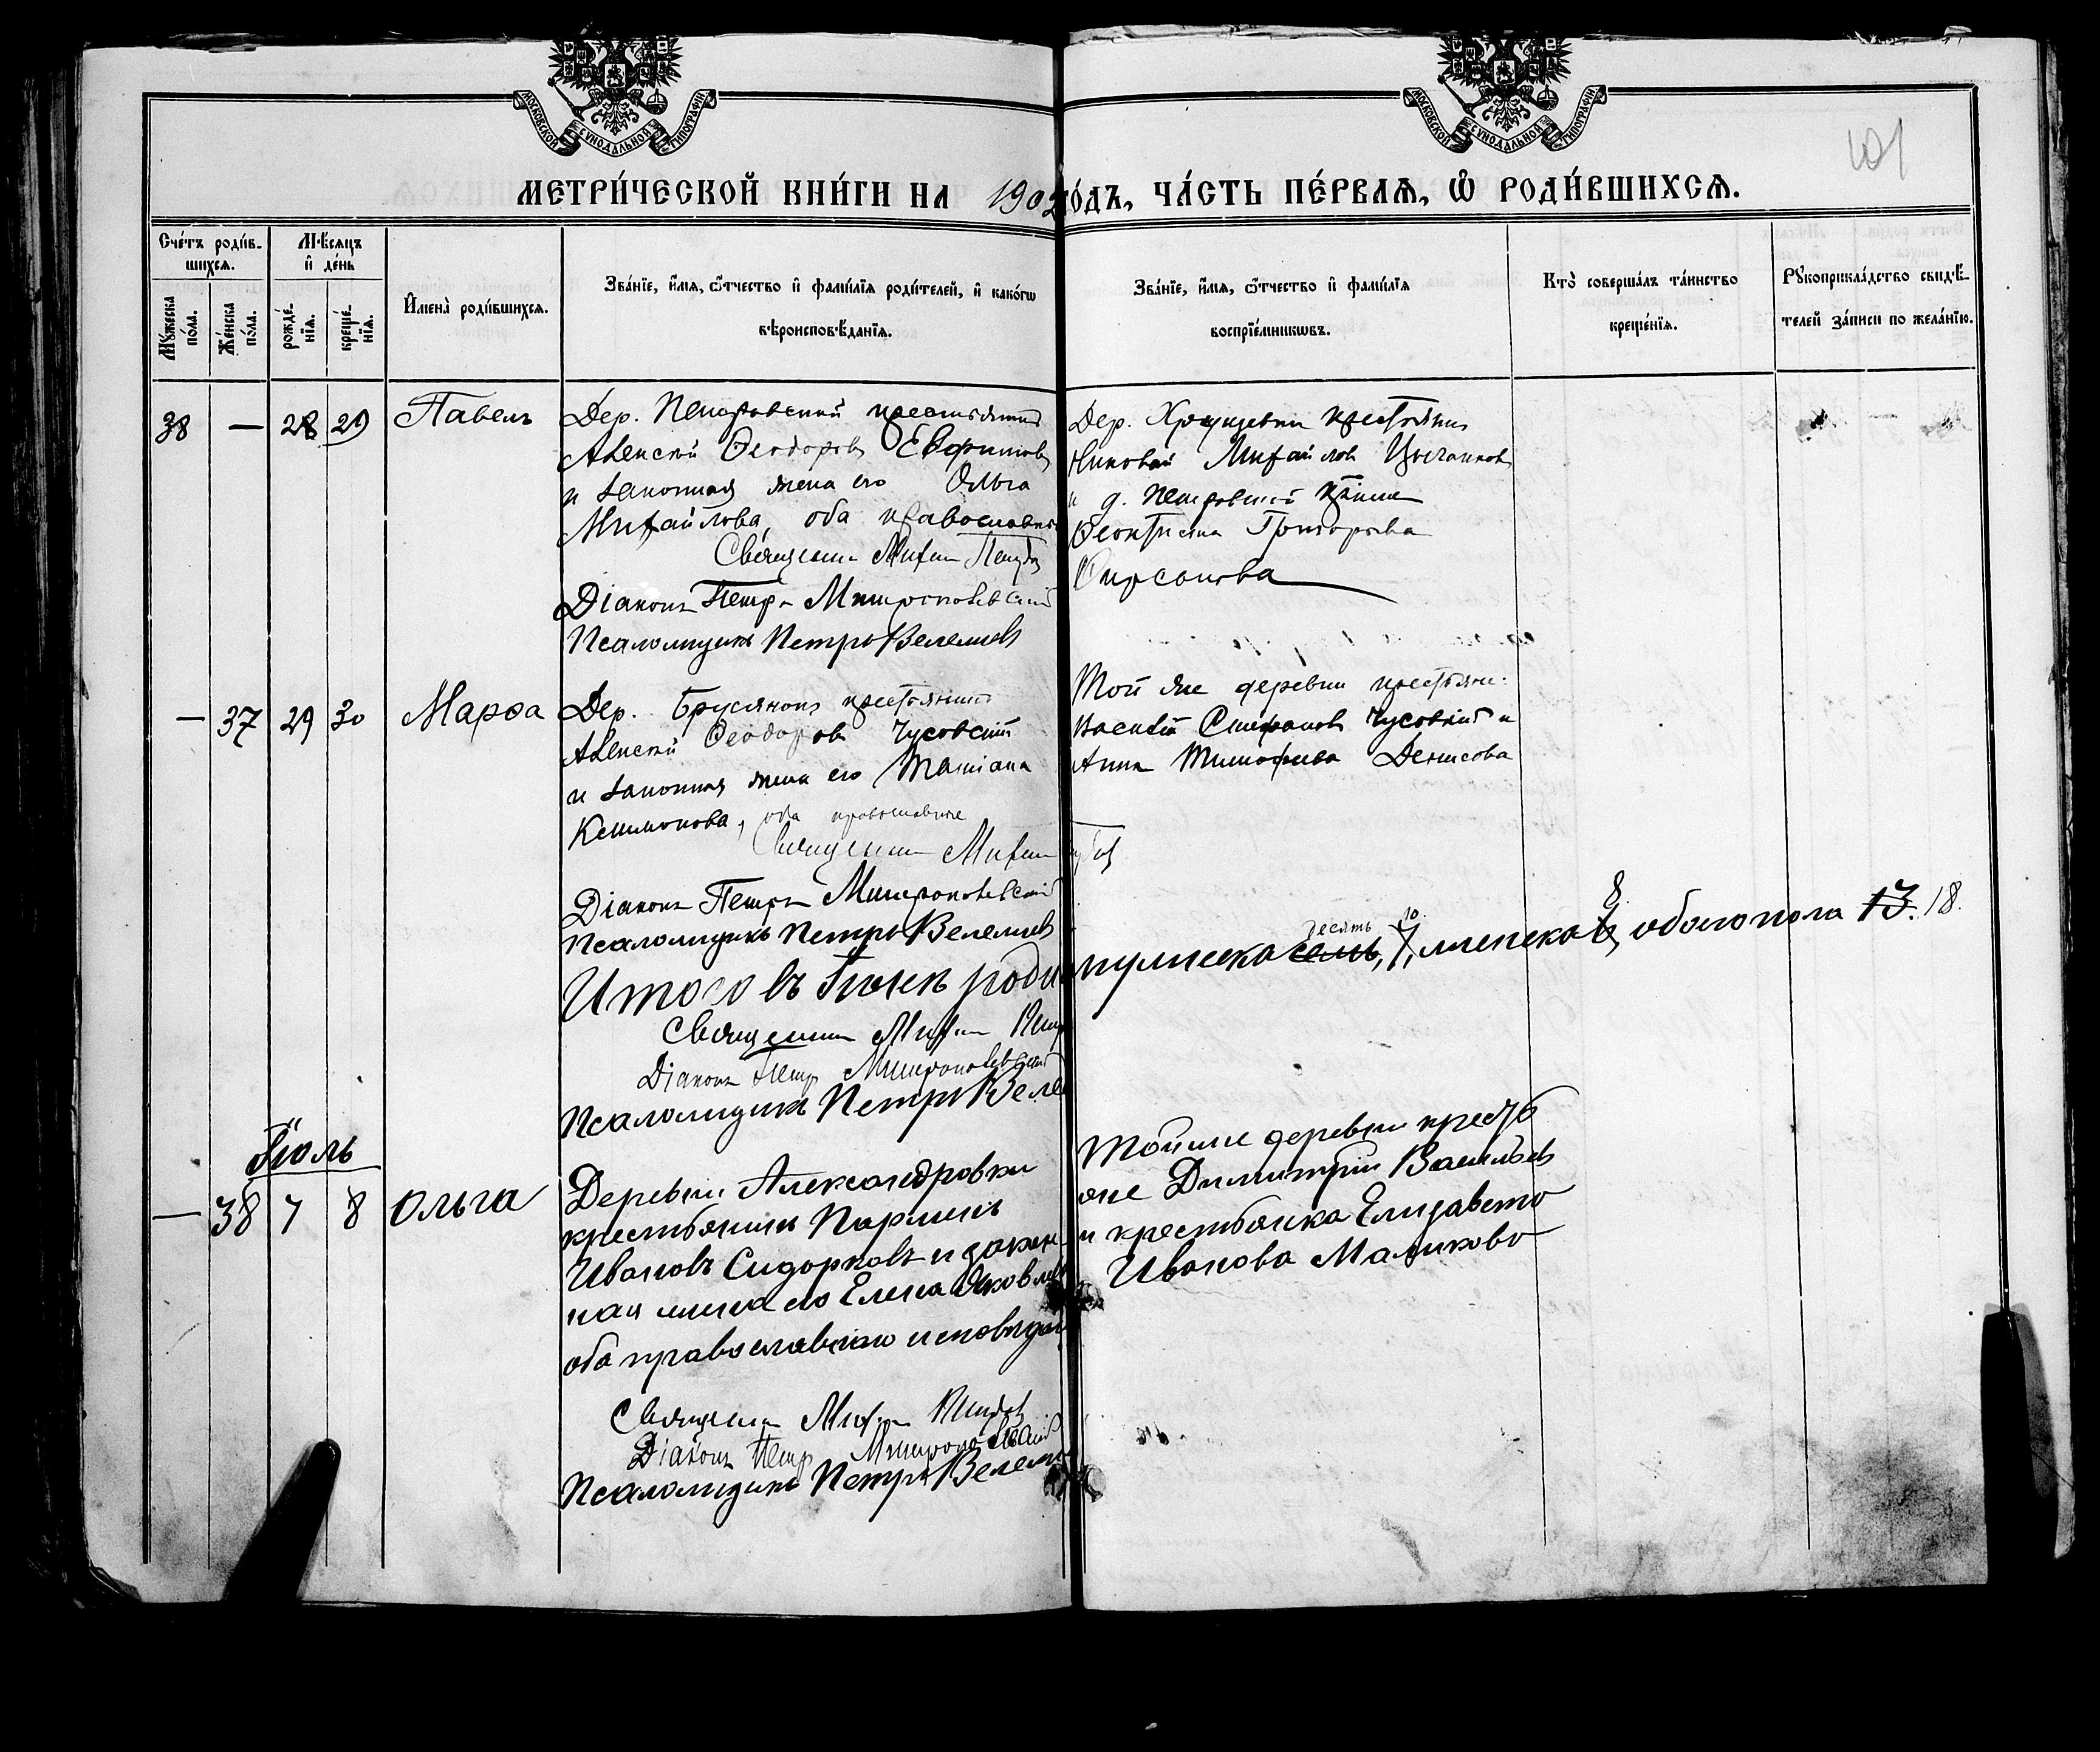 МОСКОВСКОЙ СѴНОДАЛЬНОЙ ТИПОГРАФІИ
МОСКОВСКОЙ СѴНОДАЛЬНОЙ ТИПОГРАФІИ
101
МЕТРИ́ЧЕСКОЙ КНИ́ГИ НА 1902 ГО́ДЪ, ЧА́СТЬ ПЕ́РВАЯ, Ѽ РОДИ́ВШИХСЯ.
Сче́тъ роди́в-
шихся.
Мѣ́сяцъ
и҆ де́нь
Мꙋ́жеска по́ла.
Же́нска по́ла.
рожде́-
нїя.
креще́-
нїя.
И҆мена̀ роди́вшихся.
Зва́нїе, и҆́мя, ѻ҆́тчество и҆ фами́лїя роди́телей, и҆ како́гѡ
вѣроисповѣ́данїя.
Зва́нїе, и҆́мя, ѻ҆́тчество и҆ фами́лїя
воспрїе́мникѡвъ.
Кто̀ соверша́лъ та́инство
креще́нїя.
Рꙋкоприкла́дство свидѣ́-
телей за́писи по жела́нїю.
38 — 28 29 Павелъ
Дер. Петровской крестьянинъ
Алексѣй Ѳеодоровъ Евфимовъ
и законная жена его Ольга
Михайлова, оба православн
Священни Михаи
Діаконъ Петръ Митропольскій
Псаломщикъ Петръ Велемicъ
Дер. крестьянинъ
Николай Михайловъ Цыганковъ
и д. Петровской
Григорьева
Фирсанова
— 37 29 30 Марѳа
Дер. Брусянокъ крестьянинъ
Алексѣй Ѳеодоровъ Чусовскій
и законная жена его Татіана
оба православные
Священни Михаи
Діаконъ Петръ Митропольскій
Псаломщикъ Петръ
Той же деревни крестьяне:
Василій Стефановъ Чусовскій и
Анна Тимофеева Денисова
Итого въ Іюнѣ роди мужеска семь, десять 7, 10. женска 6, 8 обоего пола 13. 18.
Священни Михаи
Діаконъ Петр Митропольскій
Псаломщикъ Петръ
Іюль
— 38 7 8 Ольга
Деревни Александровки
крестьянинъ Парменъ
Ивановъ Сидорковъ и закон-
ная жена его Елена Яковлев
оба православнаго исповѣдан
Священни Михаи
Діаконъ Петр Митропольскій
Псаломщикъ Петръ
Той же деревни крестья
яне Димитрій Васильевъ
и крестьянка Елизавета
Иванова Маликова